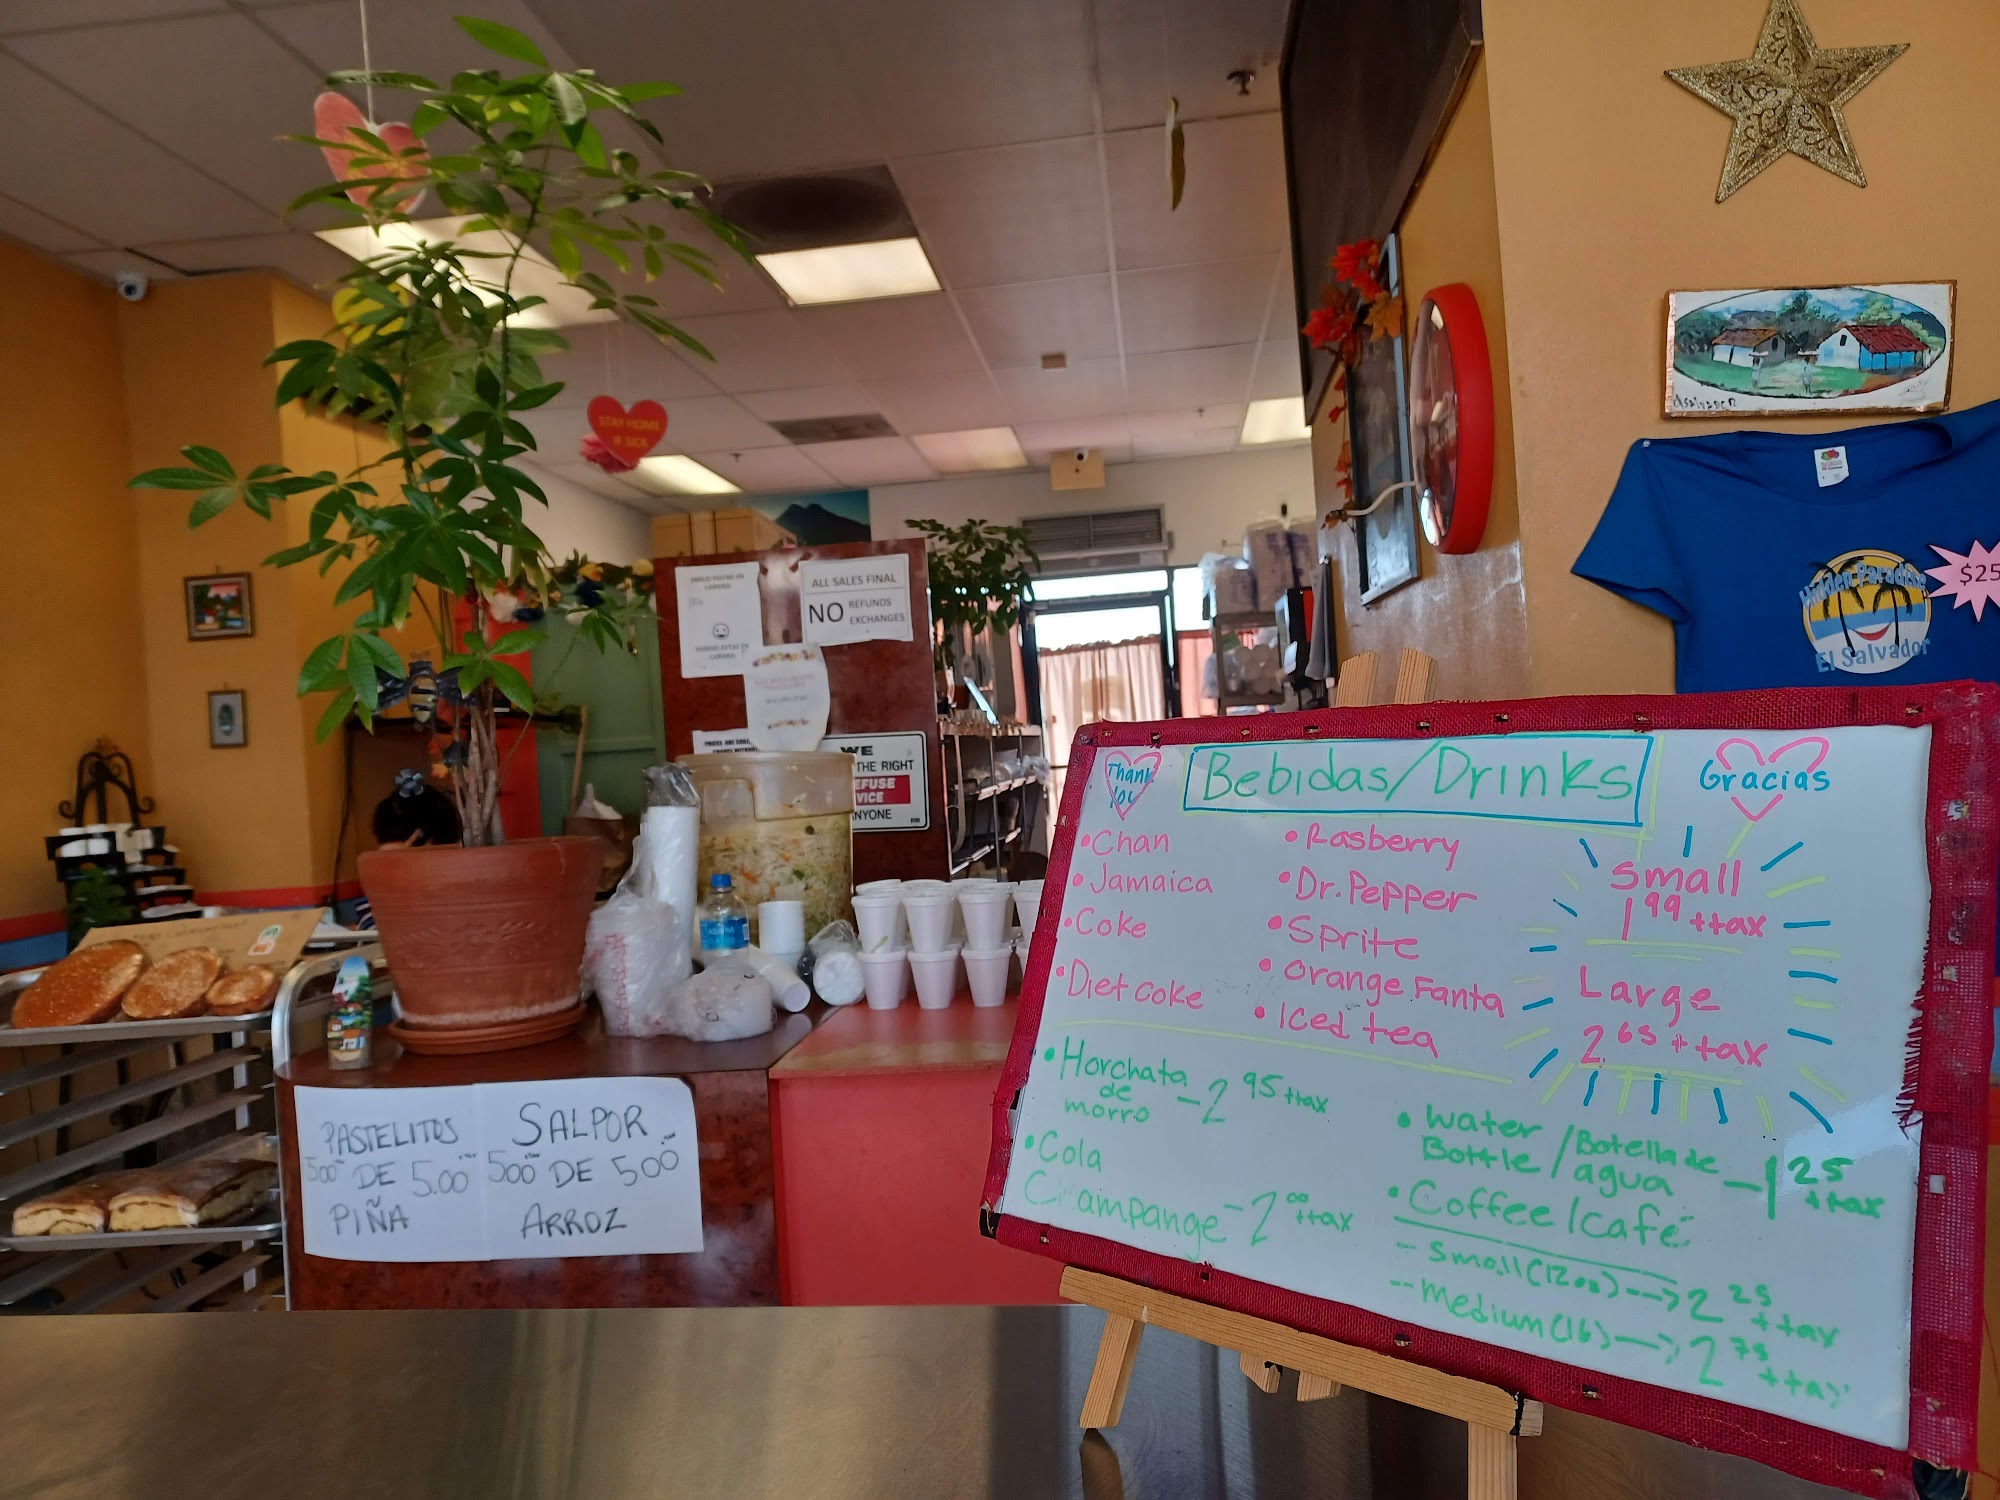 STAY HOME
IF SICK
SMILE! YOU'RE ON
CAMERA!
SONRIE! ESTAS EN
CAMARA!
ALL SALES FINAL
NO REFUNDS
EXCHANGES
WE
THE RIGHT
EFUSE
VICE
NYONE
PASTELITOS
5.00 DE 5.00
PIÑA
SALPOR
5.00 DE 5.00
ARROZ
El Salvador
$25
Hidden Paradise
El Salvador
Thank
You
Bebidas/Drinks
Gracias
• Chan
• Jamaica
• Coke
• Diet coke
• Rasberry
• Dr. Pepper
• Sprite
• Orange Fanta
• Iced tea
Small
1.99 + tax
Large
2.65 + tax
• Horchata
de
morro - 2.95 + tax
• Cola
Champange - 2.00 + tax
• Water
Bottle / Botella de
agua - 1.25 + tax
• Coffee / café
- Small (12oz) --> 2.25 + tax
- Medium (16) --> 2.75 + tax